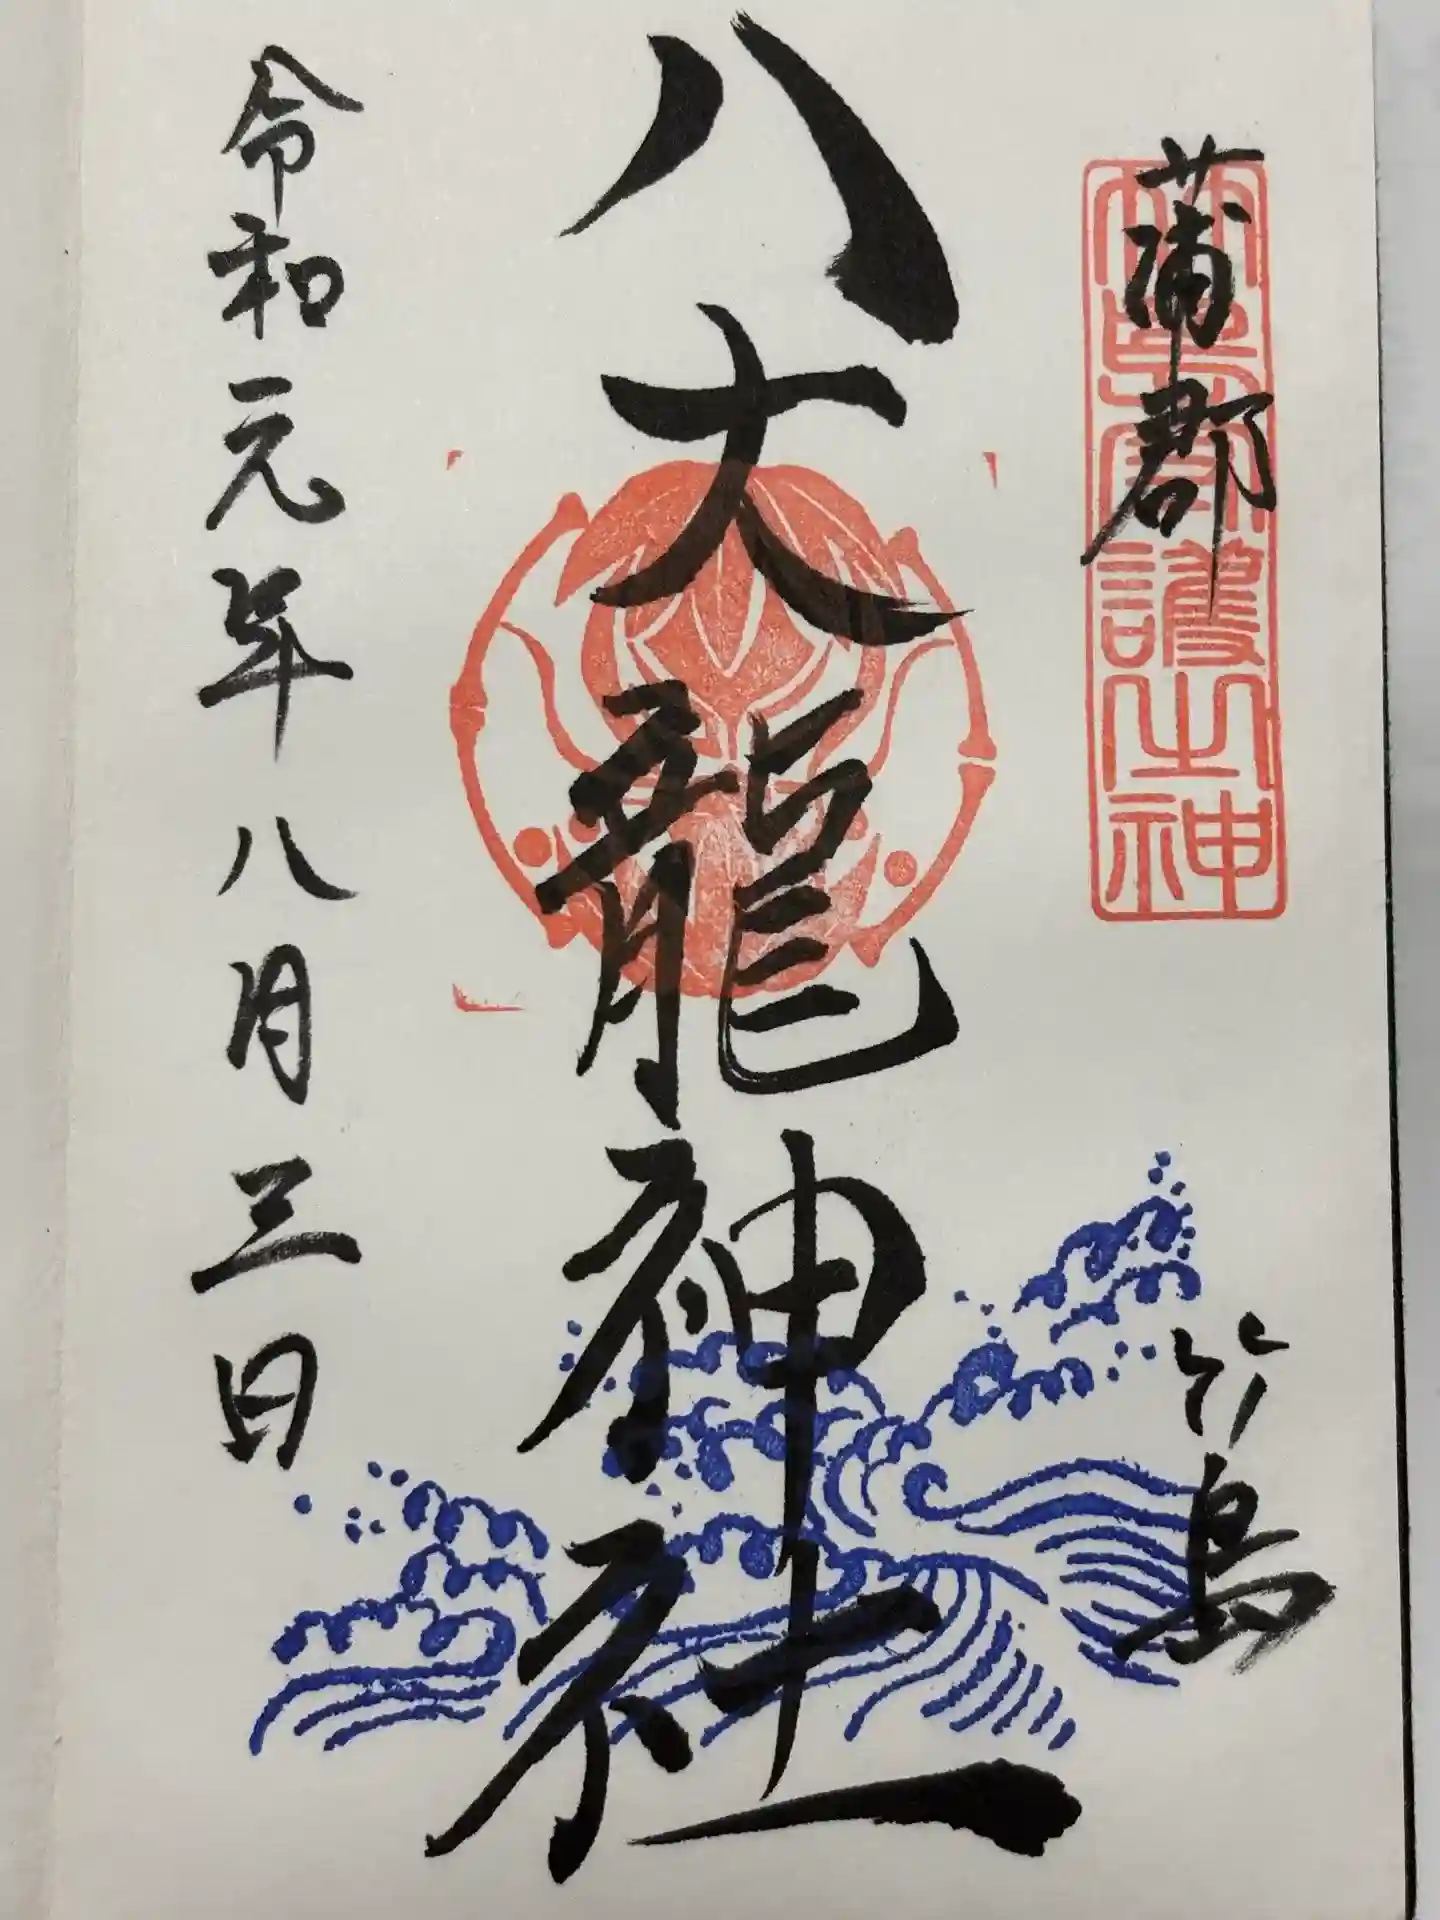 蒲郡
竹島
竹島守護之神
八大龍神社
令和元年八月三日